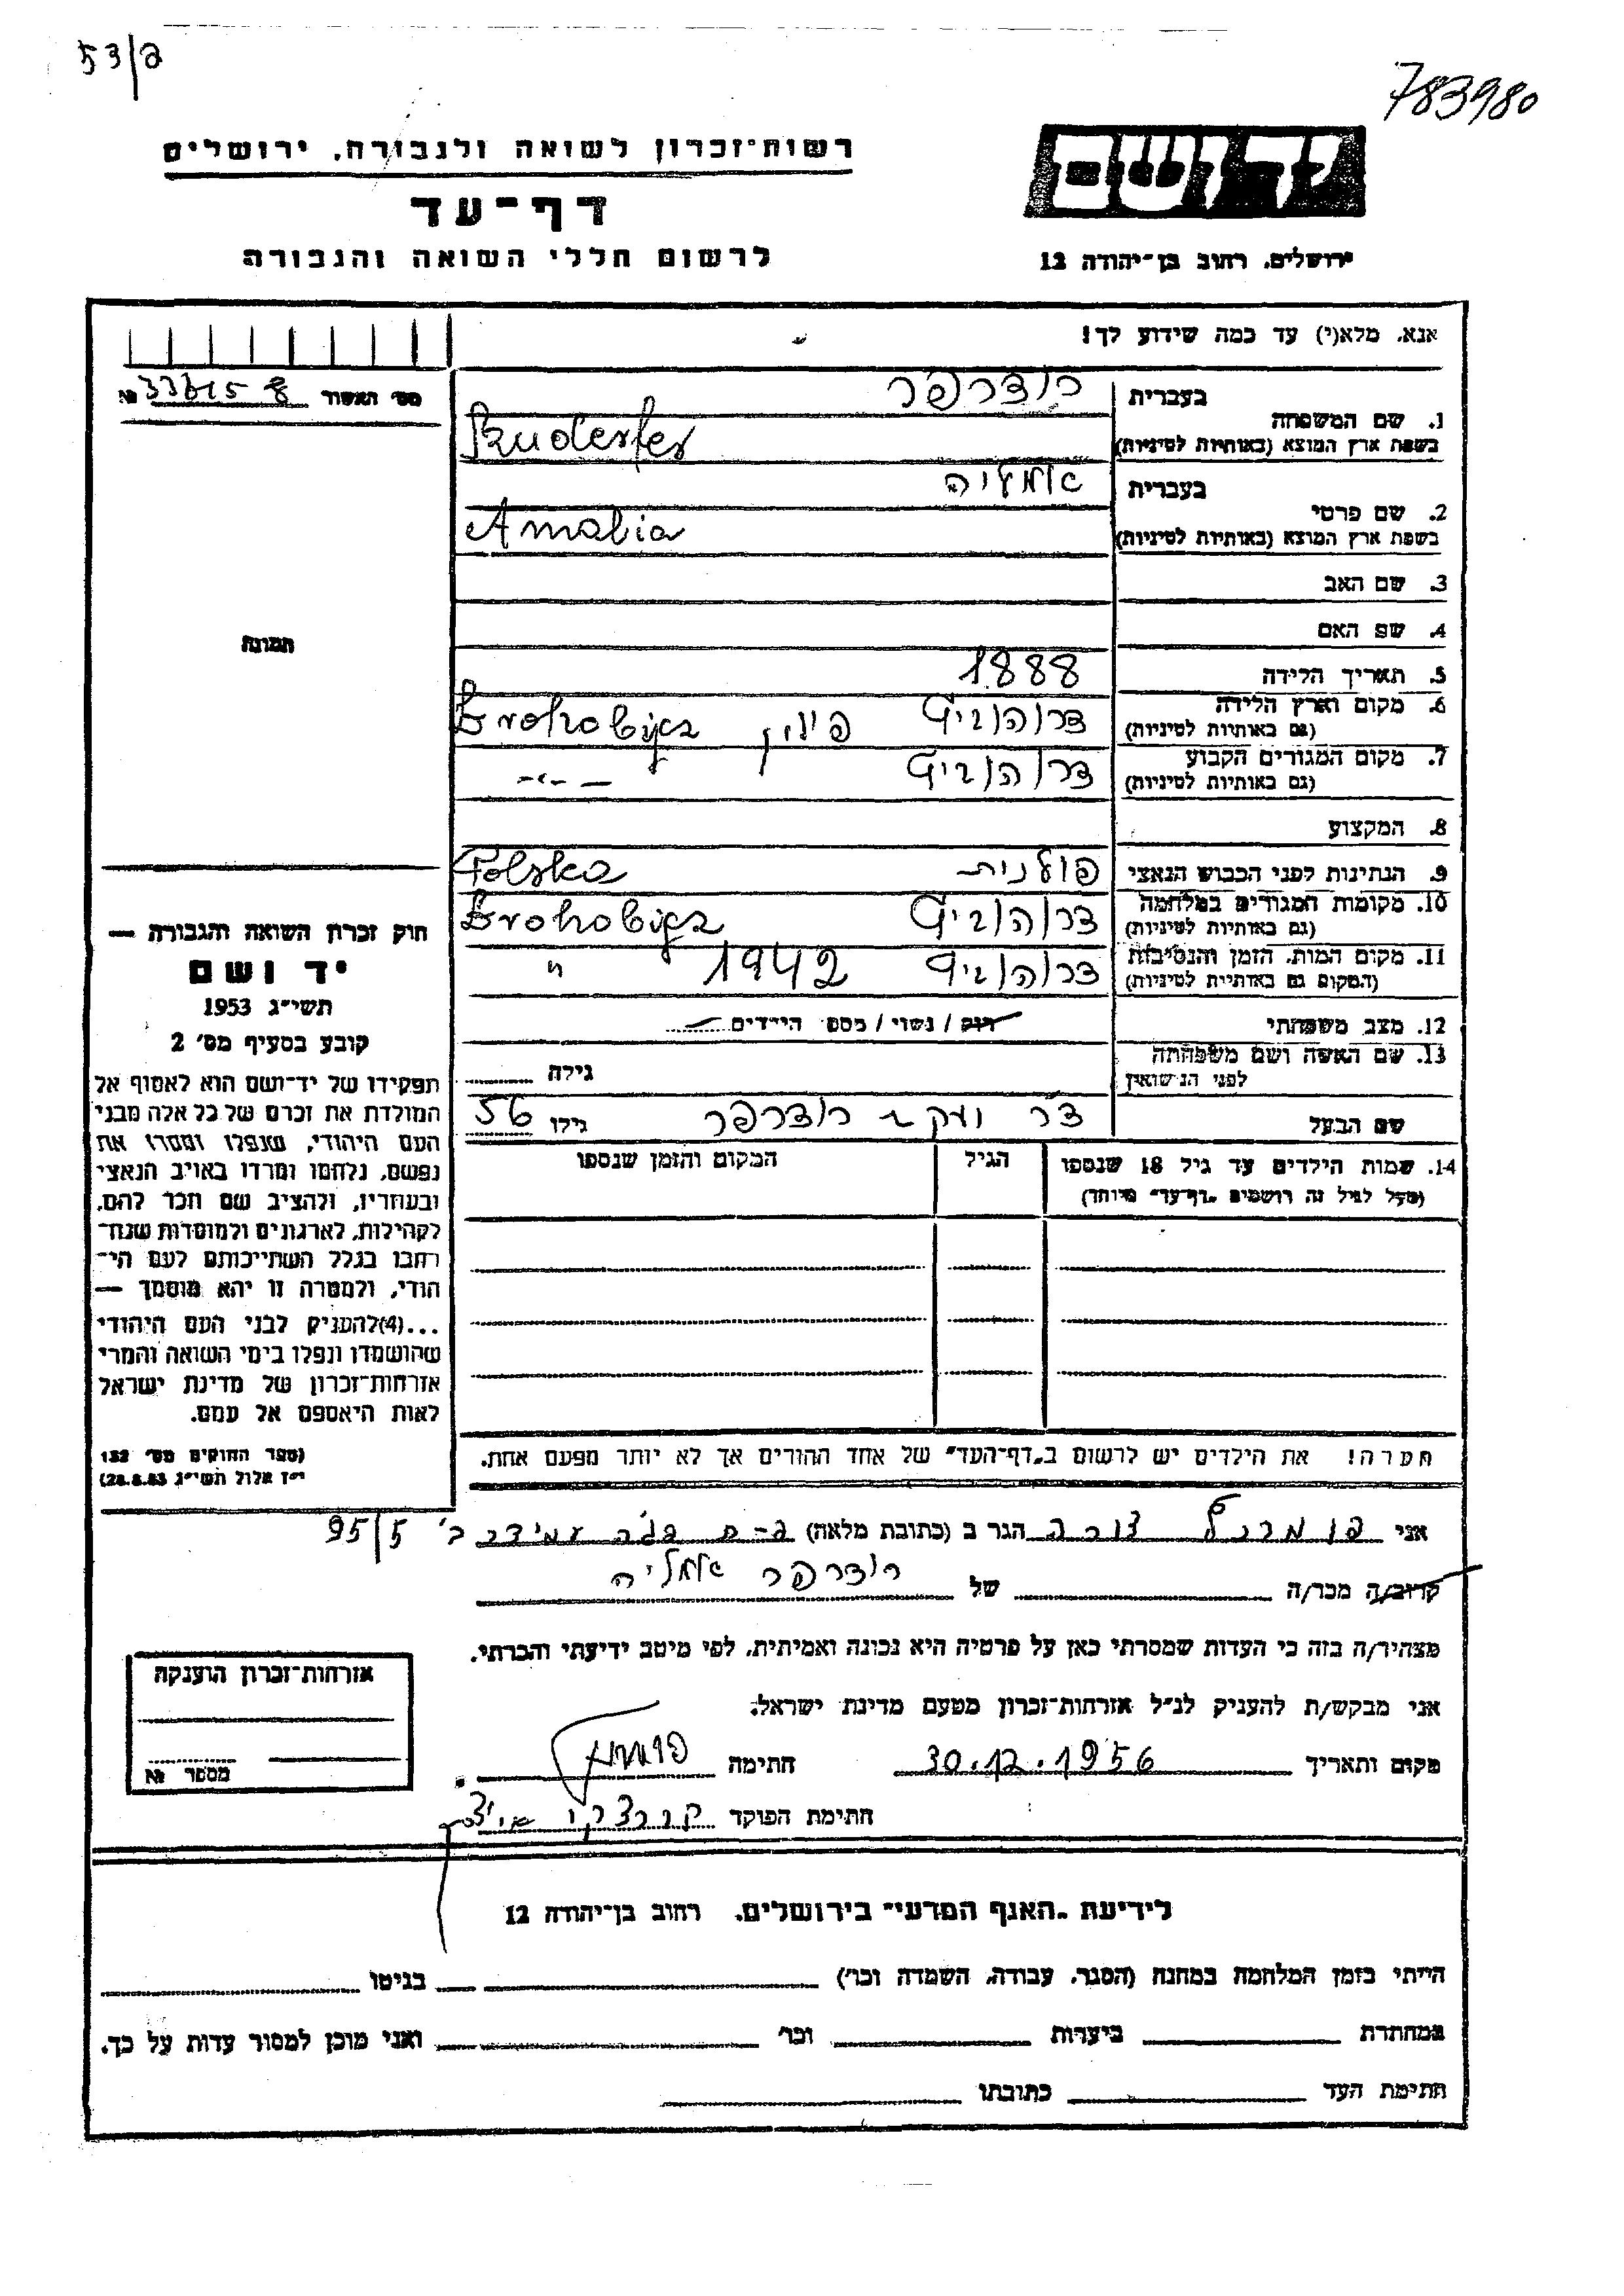 53/ב
783980
רשות-זכרון לשואה ולגבורה, ירושלים
דף-עד
לרשום חללי השואה והגבורה
יד ושם
ירושלים, רחוב בן-יהודה 12
אנא, מלא(י) עד כמה שידוע לך!
מס' האשור №
1. שם המשפחה
בעברית רודרפר
בשפת ארץ המוצא (באותיות לטיניות) Ruderfer
2. שם פרטי
בעברית אמליה
בשפת ארץ המוצא (באותיות לטיניות) Amalia
3. שם האב
4. שם האם
5. תאריך הלידה 1888
6. מקום וארץ הלידה (גם באותיות לטיניות) דרוהוביץ פולין Drohobycz
7. מקום המגורים הקבוע (גם באותיות לטיניות) דרוהוביץ -"-
8. המקצוע
9. הנתינות לפני הכבוש הנאצי פולנית Polska
10. מקומות המגורים במלחמה (גם באותיות לטיניות) דרוהוביץ Drohobycz
11. מקום המות, הזמן והנסיבות (המקום גם באותיות לטיניות) דרוהוביץ 1942 "
12. מצב משפחתי רווק / נשוי / מספר הילדים
13. שם האשה ושם משפחתה לפני הנישואין גילה
שם הבעל דר יעקב רודרפר גילו 56
14. שמות הילדים עד גיל 18 שנספו הגיל המקום והזמן שנספו
(מעל לגיל זה רושמים "דף-עד" מיוחד)
הערה! את הילדים יש לרשום ב"דף-העד" של אחד ההורים אך לא יותר מפעם אחת.
תמונה
חוק זכרון השואה והגבורה —
יד ושם
תשי"ג 1953
קובע בסעיף מס' 2
תפקידו של יד-ושם הוא לאסוף אל
המולדת את זכרם של כל אלה מבני
העם היהודי, שנפלו ומסרו את
נפשם, נלחמו ומרדו באויב הנאצי
ובעוזריו, ולהציב שם וזכר להם,
לקהילות, לארגונים ולמוסדות שנח-
רבו בגלל השתייכותם לעם הי-
הודי, ולמטרה זו יהא מוסמך —
...(4)להעניק לבני העם היהודי
שהושמדו ונפלו בימי השואה והמרי
אזרחות-זכרון של מדינת ישראל
לאות היאספם אל עמם.
(ספר החוקים מס' 132
י"ז אלול תשי"ג 28.8.53)
אני פומרנץ דורה הגר ב (כתובת מלאה) עמידר ב' 95/5
קרוב/ה מכר/ה של רודרפר אמליה
מצהיר/ה בזה כי העדות שמסרתי כאן על פרטיה היא נכונה ואמיתית, לפי מיטב ידיעתי והכרתי.
אני מבקש/ת להעניק לנ"ל אזרחות-זכרון מטעם מדינת ישראל.
מקום ותאריך 30.12.1956 חתימה
חתימת הפוקד
אזרחות-זכרון הוענקה
מספר №
לידיעת "האגף המדעי" בירושלים, רחוב בן-יהודה 12
הייתי בזמן המלחמה במחנה (הסגר, עבודה, השמדה וכו') בגיטו
במחתרת ביערות וכו' ואני מוכן למסור עדות על כך.
חתימת העד כתובתו